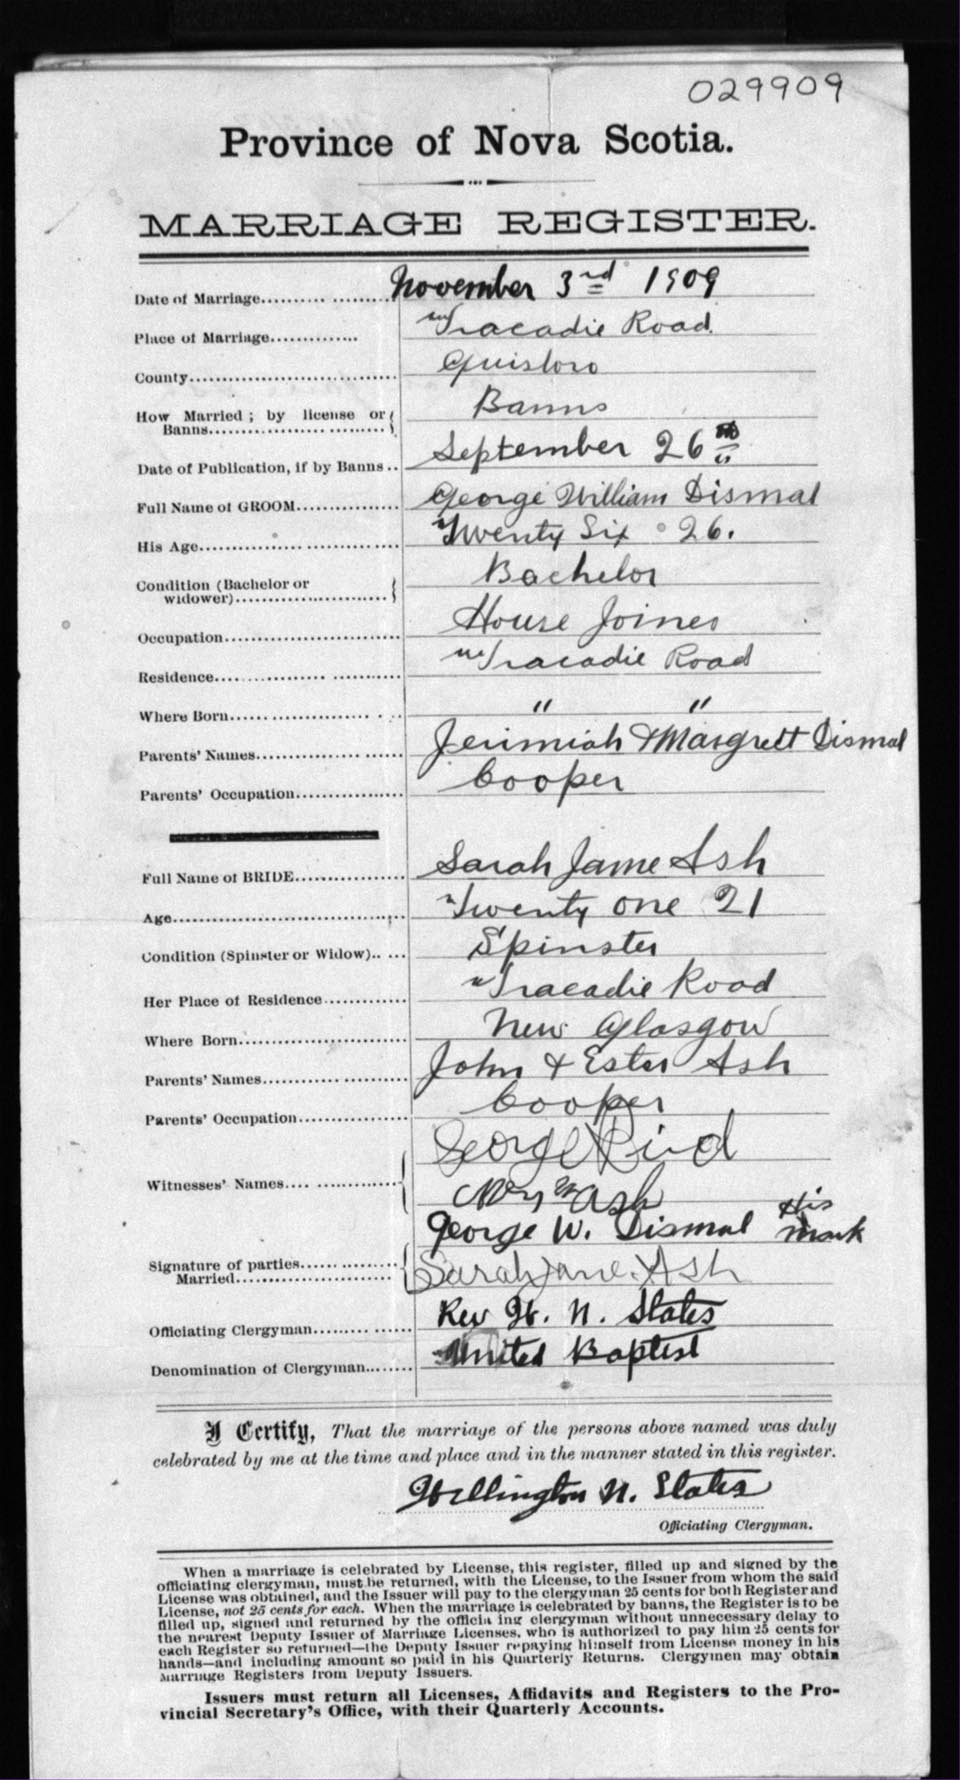 029909
Province of Nova Scotia.
MARRIAGE REGISTER.
Date of Marriage.................... November 3rd 1909
Place of Marriage.............. Tracadie Road
County.................................. Guisboro
How Married ; by license or
Banns.............................. Banns
Date of Publication, if by Banns.. September 26th
Full Name of GROOM................ George William Dismal
His Age.............................. Twenty Six 26.
Condition (Bachelor or
widower)......................... Bachelor
Occupation............................. House Joiner
Residence.............................. Tracadie Road
Where Born......................... " "
Parents' Names...................... Jerimiah & Margrett Dismal
Parents' Occupation................. Cooper
Full Name of BRIDE................. Sarah Jame Ash
Age..................................... Twenty one 21
Condition (Spinster or Widow)..... Spinster
Her Place of Residence............. Tracadie Road
Where Born............................ New Glasgow
Parents' Names....................... John & Ester Ash
Parents' Occupation................. Cooper
George
Witnesses' Names.................... Ash
George W. Dismal His mark
Signature of parties
Married.............................. Sarah Jane Ash
Officiating Clergyman............... Rev W. N. States
Denomination of Clergyman........ United Baptist
I Certify, That the marriage of the persons above named was duly
celebrated by me at the time and place and in the manner stated in this register.
Wellington N. States
Officiating Clergyman.
When a marriage is celebrated by License, this register, filled up and signed by the
officiating clergyman, must be returned, with the License, to the Issuer from whom the said
License was obtained, and the Issuer will pay to the clergyman 25 cents for both Register and
License, not 25 cents for each. When the marriage is celebrated by banns, the Register is to be
filled up, signed and returned by the officia ing clergyman without unnecessary delay to
the nearest Deputy Issuer of Marriage Licenses, who is authorized to pay him 25 cents for
each Register so returned—the Deputy Issuer repaying himself from License money in his
hands—and including amount so paid in his Quarterly Returns. Clergymen may obtain
Marriage Registers from Deputy Issuers.
Issuers must return all Licenses, Affidavits and Registers to the Pro-
vincial Secretary's Office, with their Quarterly Accounts.